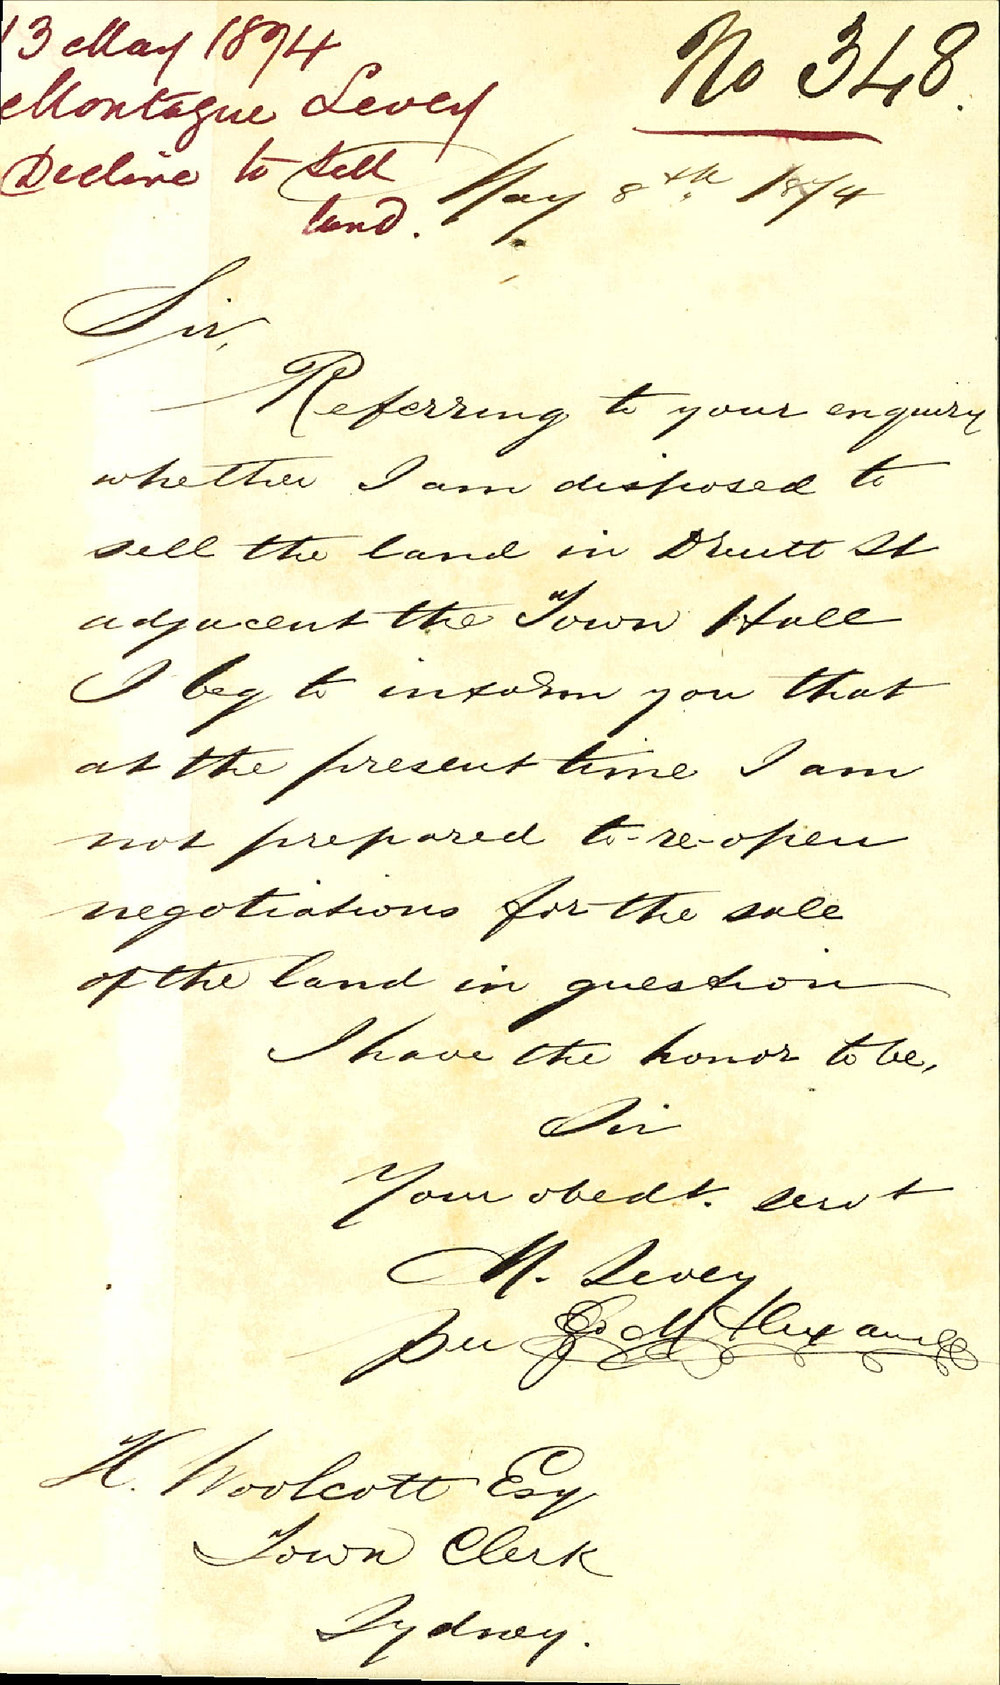 13 May 1874
Montague Levey
Decline to sell
land.
No 348.
May 8th. 1874
Sir,
Referring to your enquiry
whether I am disposed to
sell the land in Druitt St
adjacent the Town Hall
I beg to inform you that
at the present time I am
not prepared to re-open
negotiations for the sale
of the land in question
I have the honor to be,
Sir
Your obedt. servt
M. Levey
per M Alexander
H. Woolcott Esq
Town Clerk
Sydney.